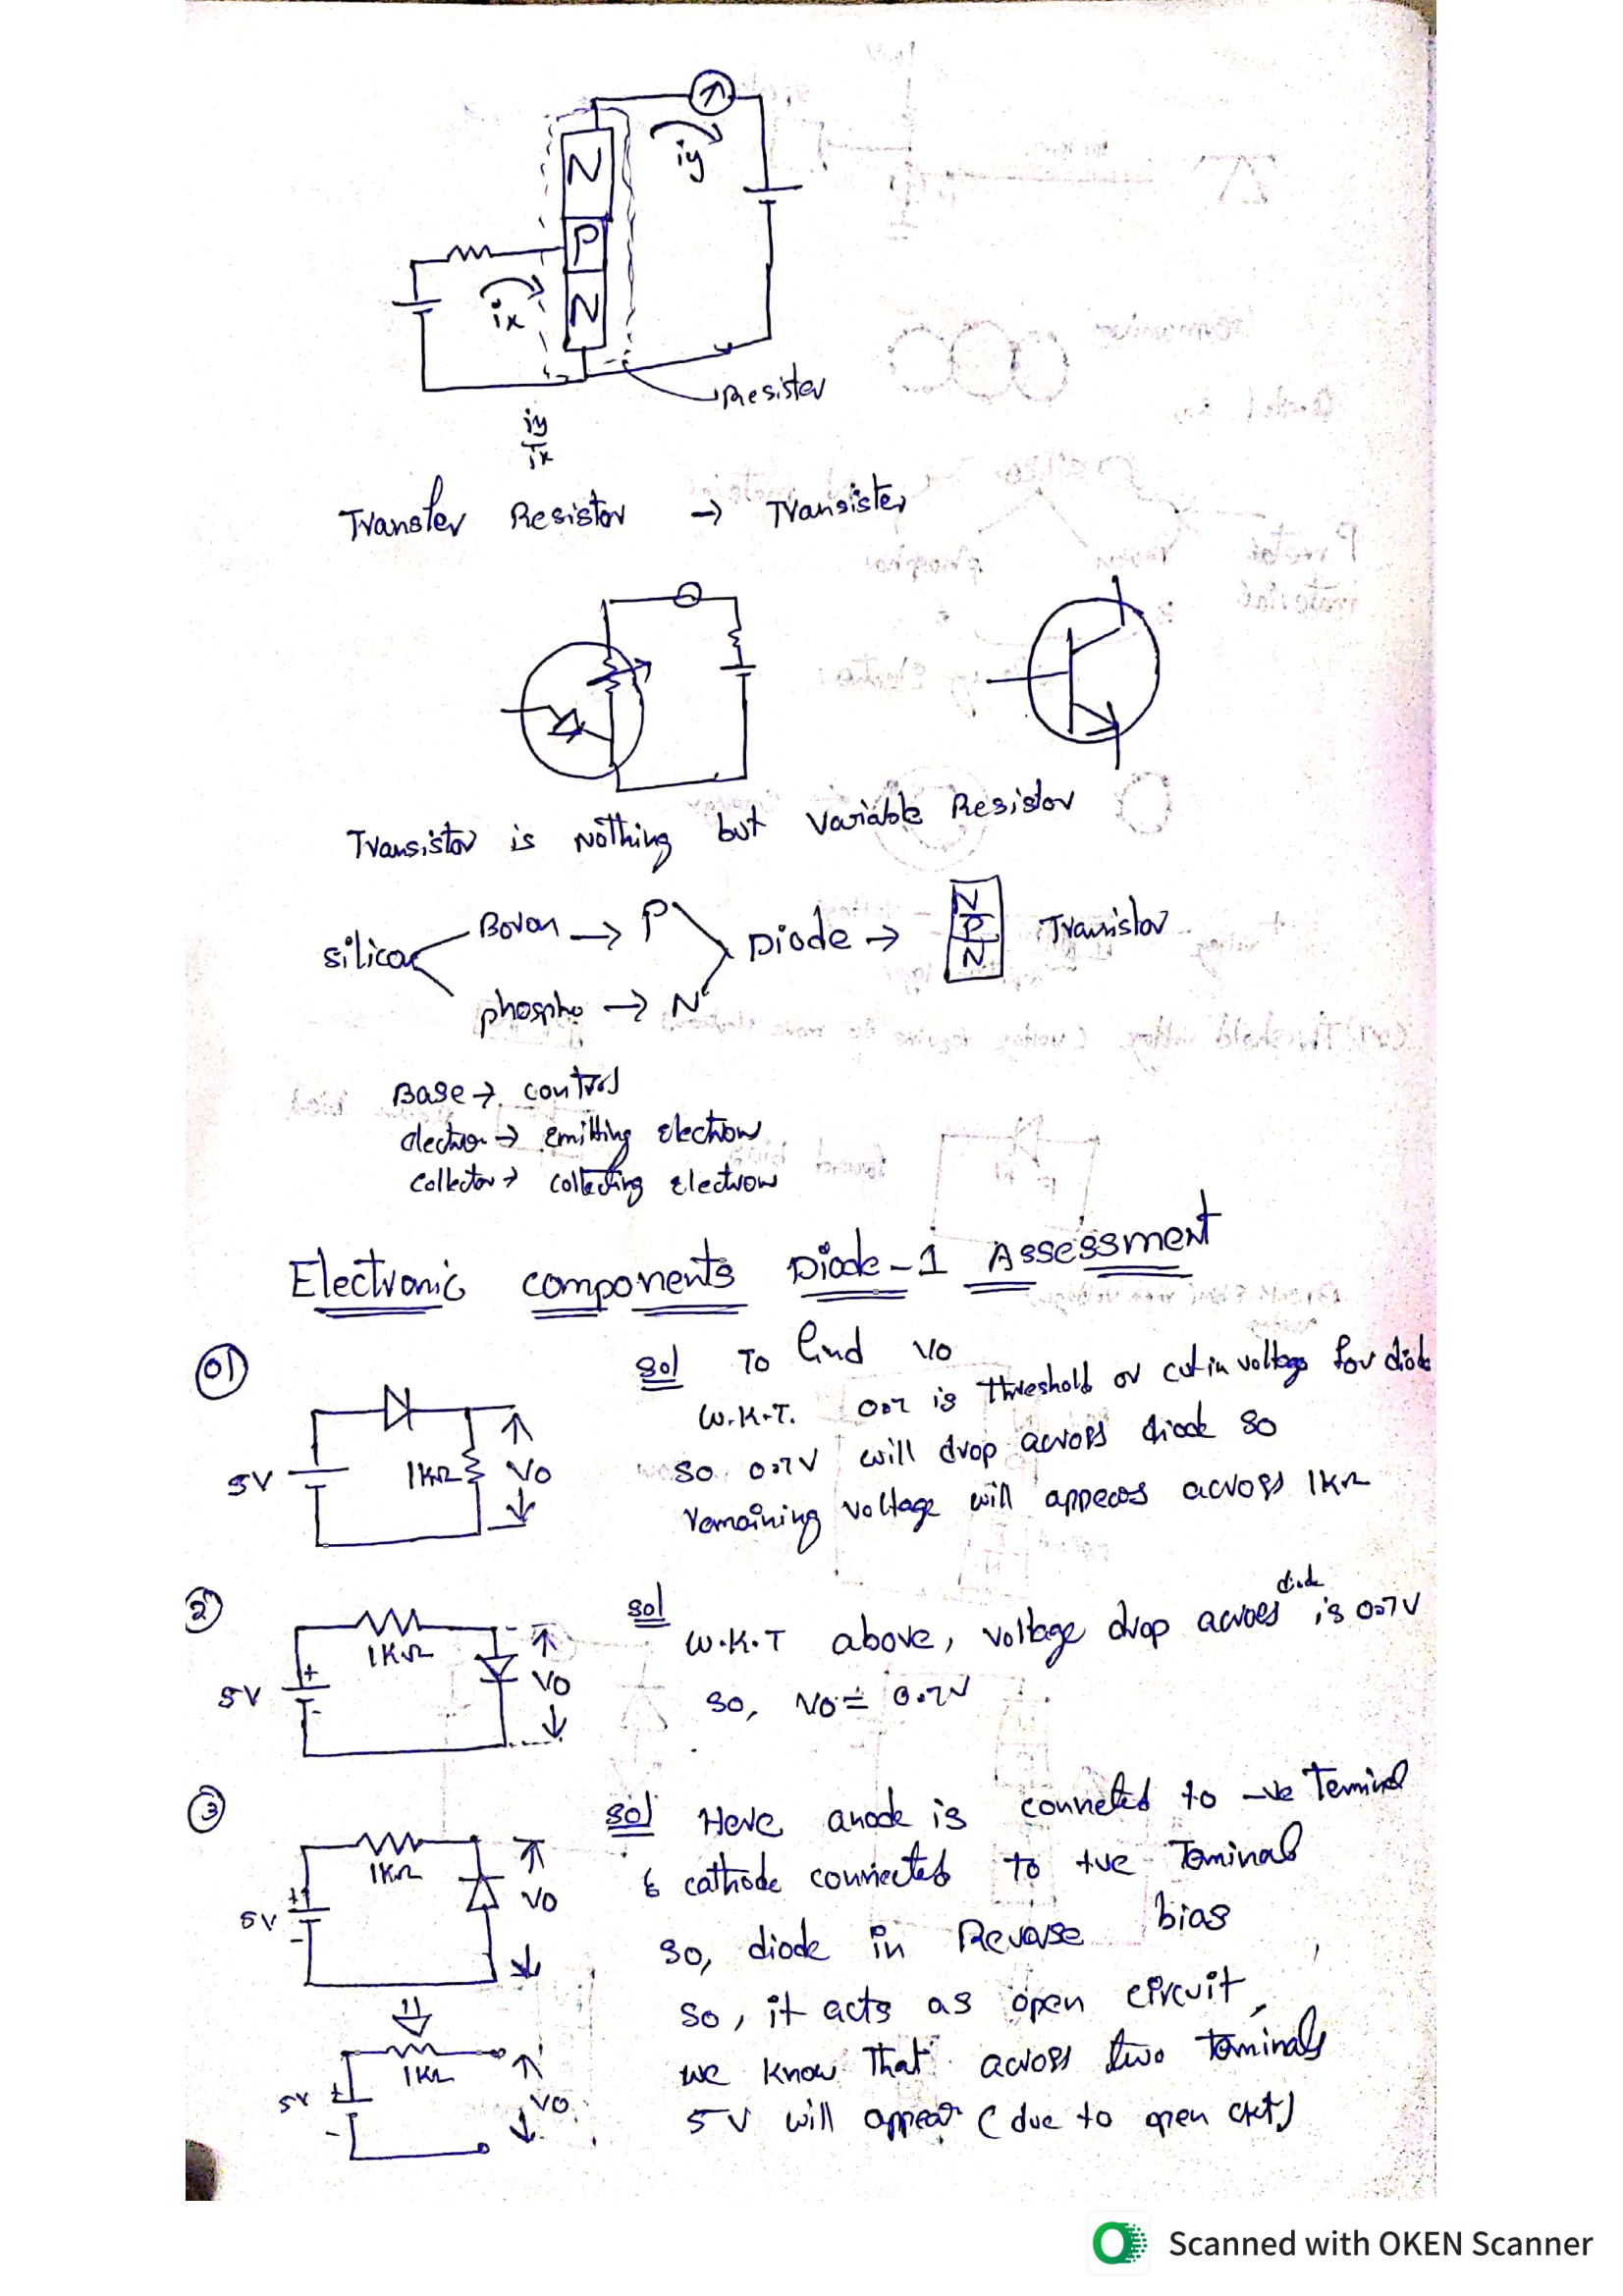 N
iy
P
N
ix
Resister
iy
ix
Transfer Resistor → Transister
Transistor is Nothing but Variable Resistor
silicon Boron → P Diode → N P N Transistor
phospho → N
Base → control
electron → emitting electron
Collector → collecting electron
Electronic components Diode-1 Assessment
01
sol To find Vo
W.K.T. 0.7 is threshold or cut in voltage for diode
so 0.7V will drop across diode so
remaining voltage will appears across 1KΩ
5V 1KΩ Vo
2
sol W.K.T above, voltage drop across diode is 0.7V
so, Vo = 0.7V
1KΩ
+
5V Vo
-
3
sol Here anode is conneted to -ve Terminal
& cathode connected to +ve Terminal
so, diode in Reverse bias
so, it acts as open circuit,
we know That across two terminals
5V will appear (due to open ckt)
1KΩ
+
5V Vo
-
1KΩ
5V + Vo
-
Scanned with OKEN Scanner